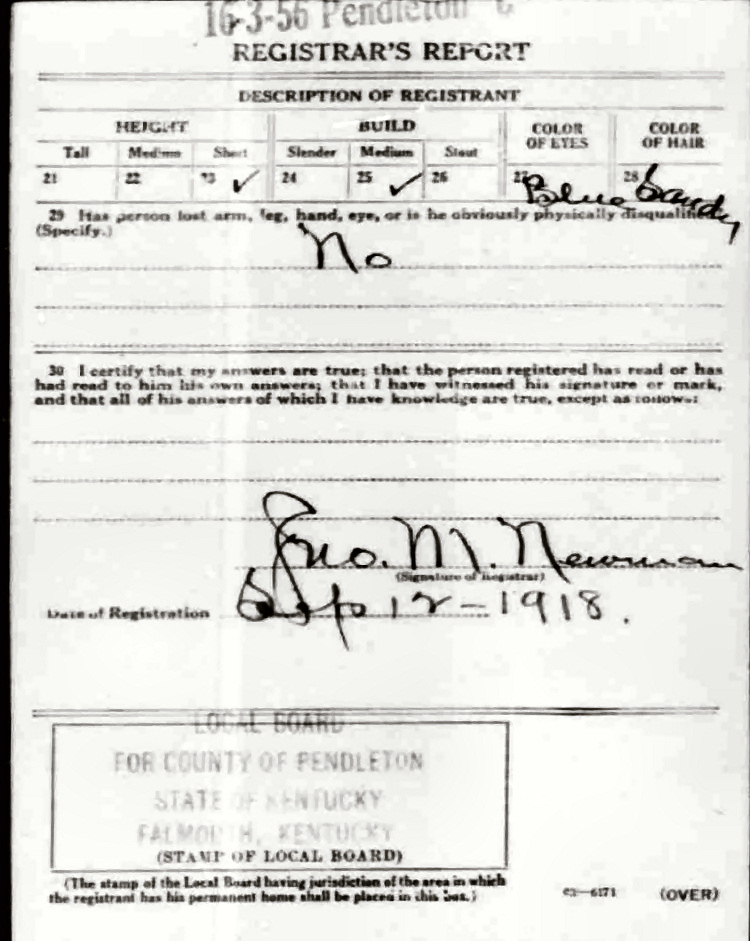 16-3-56 Pendleton C
REGISTRAR'S REPORT
DESCRIPTION OF REGISTRANT
HEIGHT BUILD COLOR OF EYES COLOR OF HAIR
Tall Medium Short Slender Medium Stout
21 22 23 ✓ 24 25 ✓ 26 27 Blue 28 Sandy
29 Has person lost arm, leg, hand, eye, or is he obviously physically disqualified
(Specify.)
No
30 I certify that my answers are true; that the person registered has read or has
had read to him his own answers; that I have witnessed his signature or mark,
and that all of his answers of which I have knowledge are true, except as follows:
Jno. M. Newman
(Signature of Registrar)
Date of Registration Sep 12-1918.
LOCAL BOARD
FOR COUNTY OF PENDLETON
STATE OF KENTUCKY
FALMOUTH, KENTUCKY
(STAMP OF LOCAL BOARD)
(The stamp of the Local Board having jurisdiction of the area in which
the registrant has his permanent home shall be placed in this box.)
03-6171 (OVER)